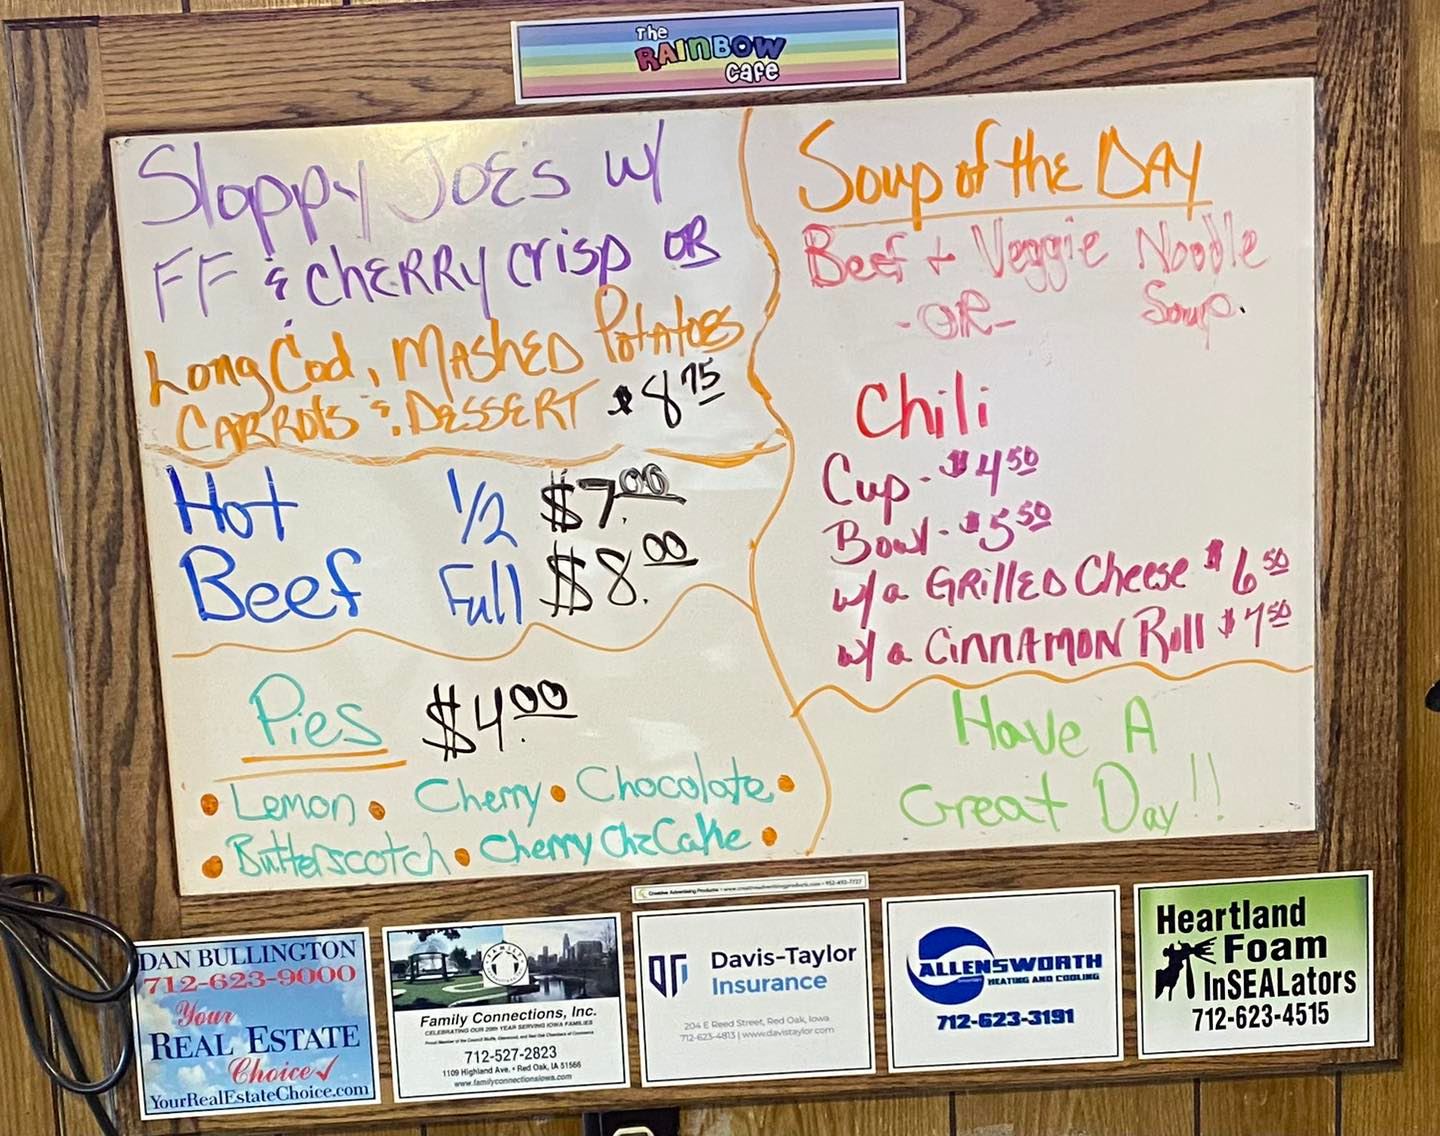 The
RAINBOW
Cafe
Sloppy JOE'S w/
FF & CHERRY Crisp OR
Long Cod, MASHED Potatoes
CARROTS & DESSERT $8.75
Hot 1/2 $7.00
Beef Full $8.00
Pies $4.00
• Lemon • Cherry • Chocolate •
• Butterscotch • Cherry ChzCake •
Soup of the DAY
Beef + Veggie Noodle
-OR- Soup.
Chili
Cup - $4.50
Bowl - $5.50
w/ a GRILLED Cheese $6.50
w/ a CINNAMON Roll $7.50
Have A
Great Day!!
Creative Advertising Products • www.creativeadvertisingproducts.com • 952-492-7727
DAN BULLINGTON
712-623-9000
Your
REAL ESTATE
Choice✓
YourRealEstateChoice.com
Family Connections, Inc.
CELEBRATING OUR 20th YEAR SERVING IOWA FAMILIES
712-527-2823
1109 Highland Ave. • Red Oak, IA 51566
www.familyconnectionsiowa.com
Davis-Taylor
Insurance
204 E Reed Street, Red Oak, Iowa
712-623-4813 | www.davistaylor.com
ALLENSWORTH
HEATING AND COOLING
712-623-3191
Heartland
Foam
InSEALators
712-623-4515